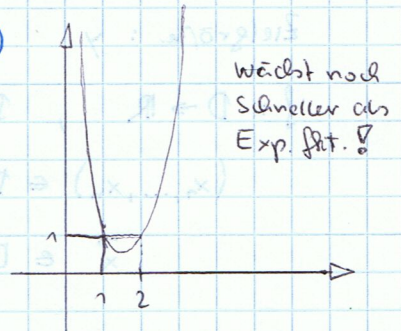 wächst noch
schneller als
Exp. fkt. !
1
1 2